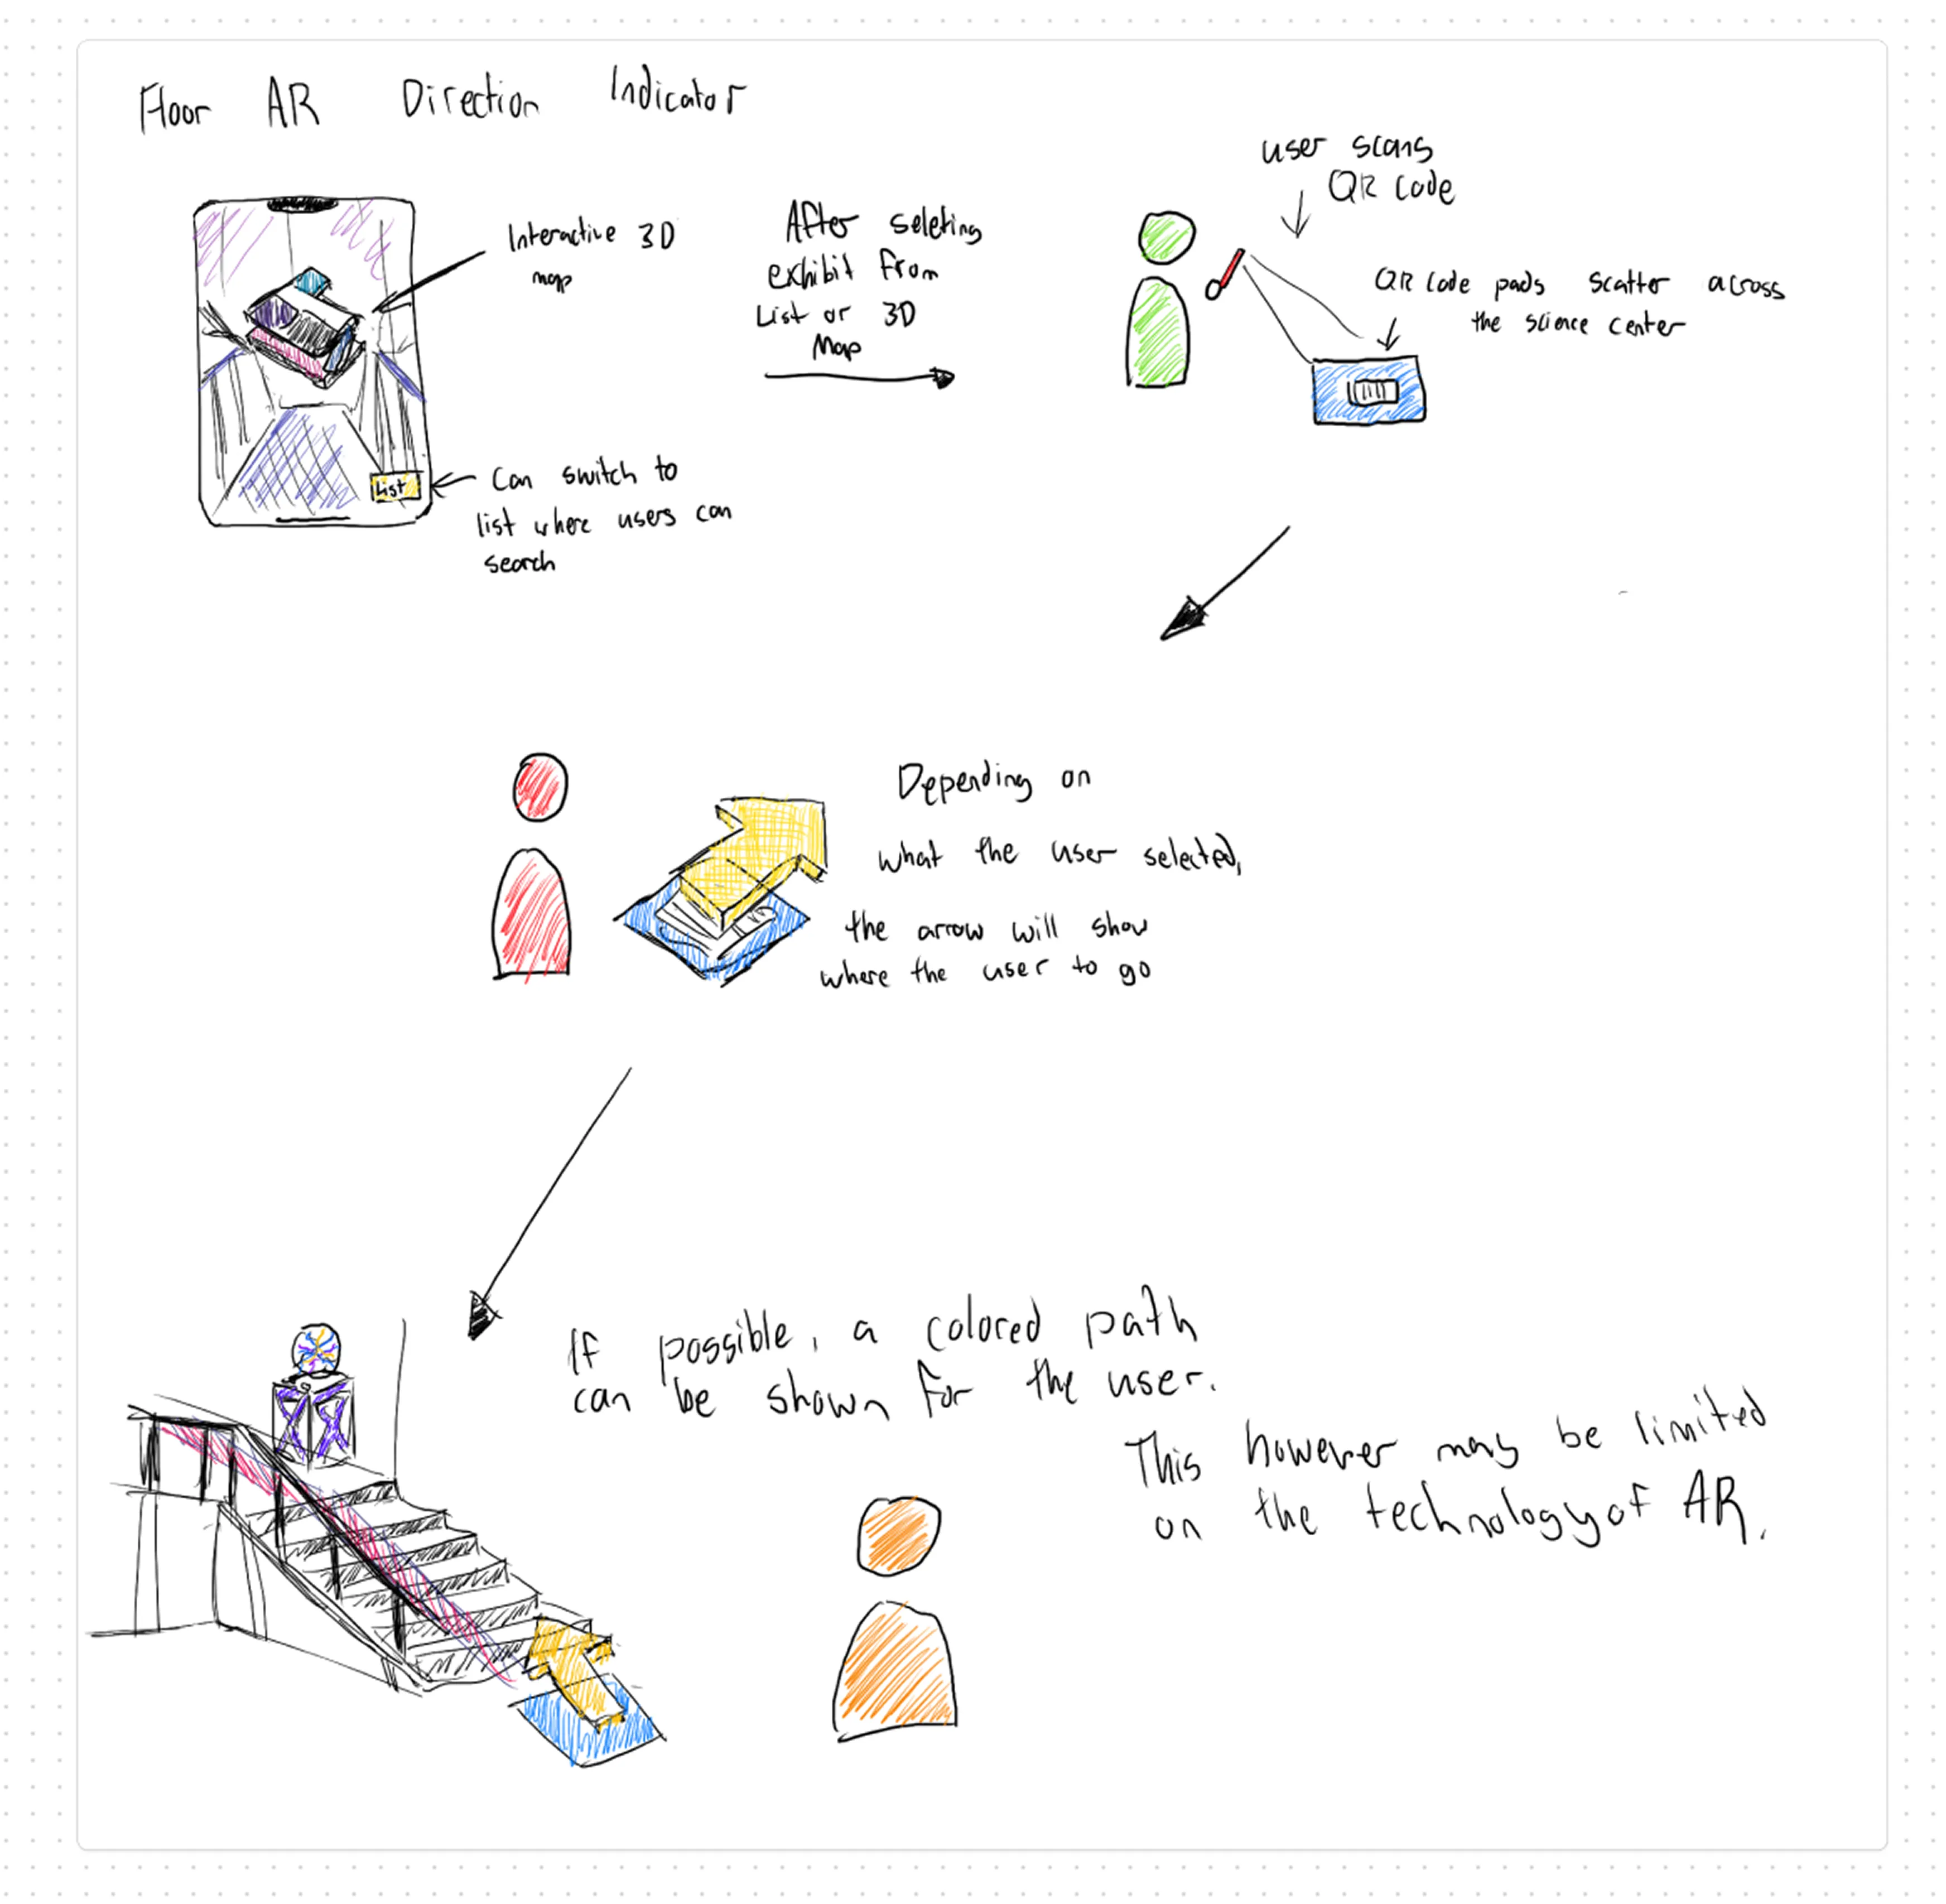 Floor AR Direction Indicator
Interactive 3D
map
List
Can switch to
list where users can
search
After seleting
exhibit from
List or 3D
Map
user scans
QR code
QR code pads scatter across
the science center
Depending on
what the user selected,
the arrow will show
where the user to go
If possible, a colored path
can be shown for the user.
This however may be limited
on the technology of AR.